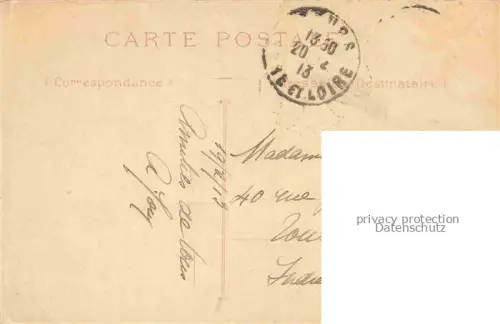 CARTE POSTALE
(Correspondance)
Destinataire)
13 30
20 2
13
ET LOIRE
19/2/13
Amitiés de tous
Madame
40 rue
privacy protection
Datenschutz